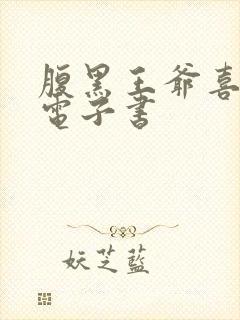 腹黑王爺喜
電子書
妖芝藍